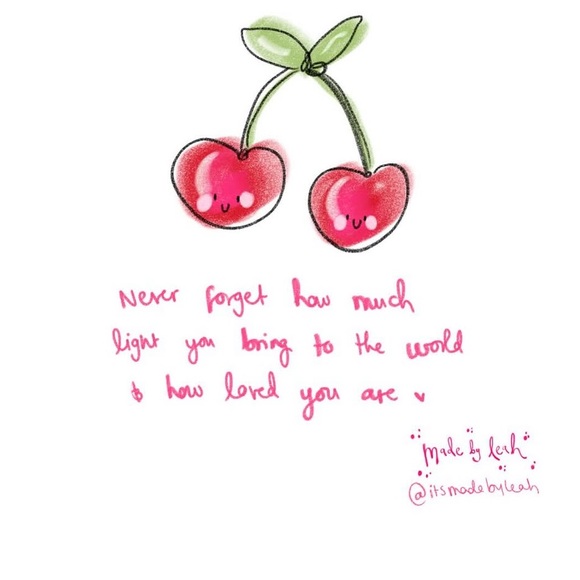 Never forget how much
light you bring to the world
& how loved you are ♥
made by leah
@itsmadebyleah